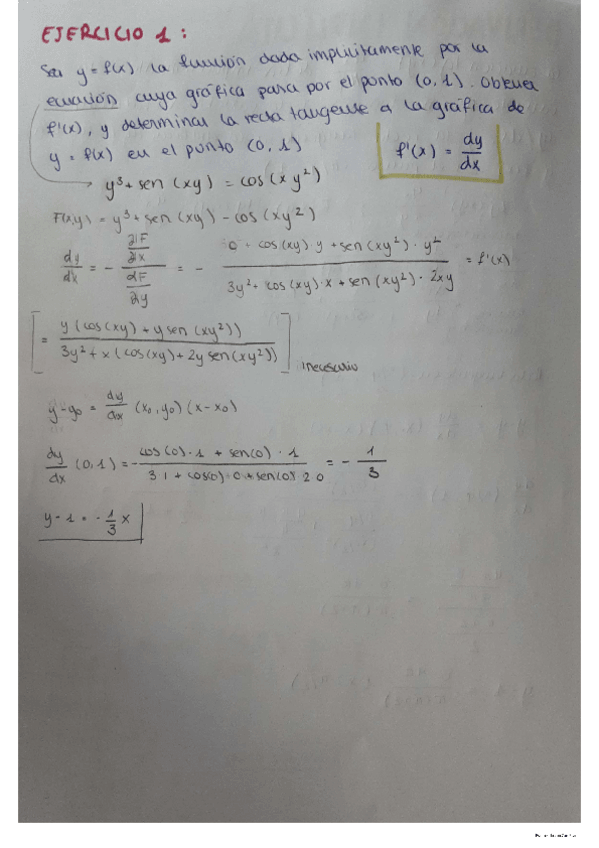 EJERCICIO 1:
Sea y = f(x) la función dada implícitamente por la
ecuación cuya gráfica pasa por el punto (0,1). Obtener
f'(x), y determinar la recta tangente a la gráfica de
y = f(x) en el punto (0,1)
f'(x) = dy/dx
y³ + sen(xy) = cos(xy²)
F(x,y) = y³ + sen(xy) - cos(xy²)
dy/dx = - (∂F/∂x)/(∂F/∂y) = - (0 + cos(xy)·y + sen(xy²)·y²)/(3y² + cos(xy)·x + sen(xy²)·2xy) = f'(x)
[= y(cos(xy) + y sen(xy²))/(3y² + x(cos(xy) + 2y sen(xy²)))] inecesario
y - y0 = dy/dx (x0, y0)(x - x0)
dy/dx (0,1) = - (cos(0)·1 + sen(0)·1)/(3·1 + cos(0)·0 + sen(0)·2·0) = - 1/3
y - 1 = - 1/3 x